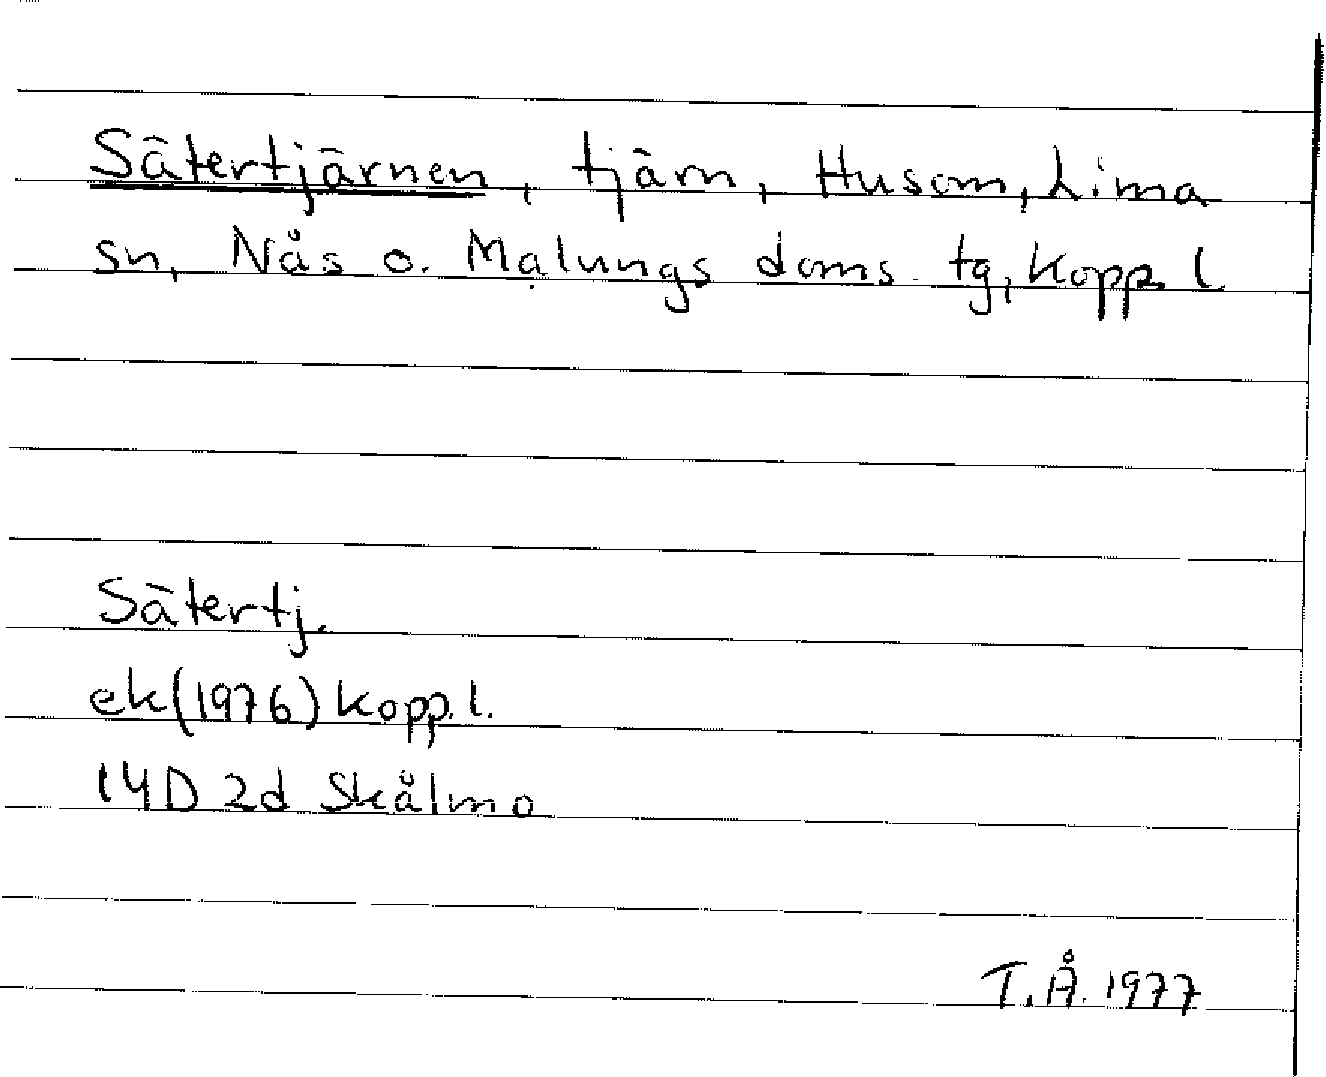 Sätertjärnen, tjärn, Husom, Lima
sn, Nås o. Malungs doms. tg, Kopp. l
Sätertj.
ek(1976) Kopp. l.
14D 2d Skålmo
T.Å. 1977